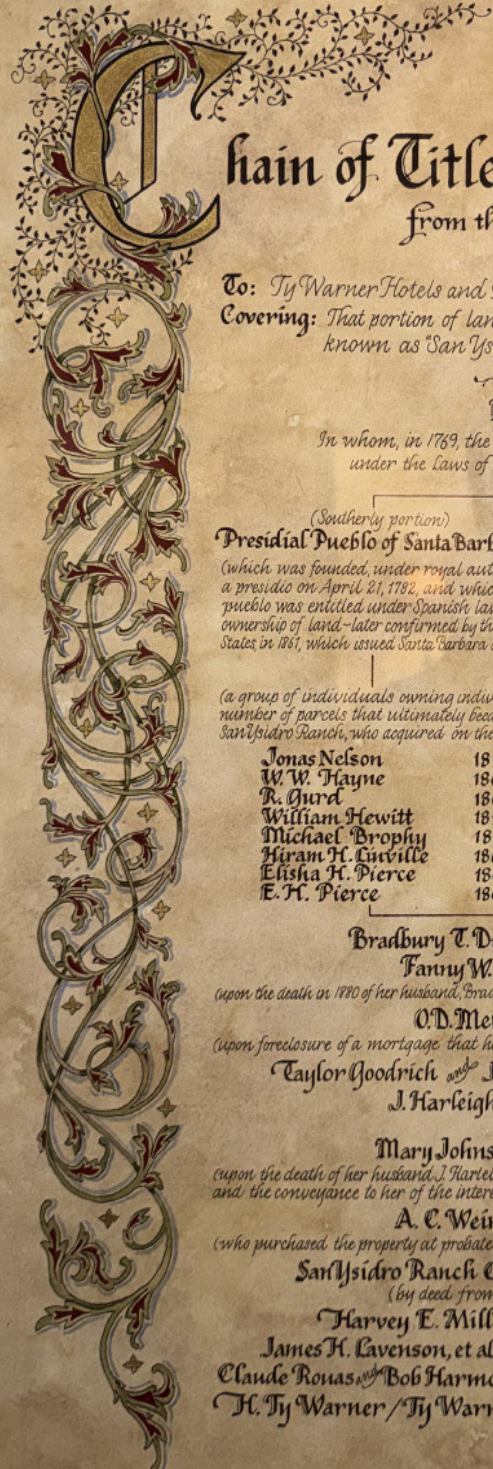 Chain of Title
from th
To: Ty Warner Hotels and
Covering: That portion of lan
known as "San Ys
In whom, in 1769, the
under the Laws of
(Southerly portion)
Presidial Pueblo of Santa Barb
(which was founded, under royal aut
a presidio on April 21, 1782, and whic
pueblo was entitled under Spanish la
ownership of land-later confirmed by th
States in 1861, which issued Santa Barbara
(a group of individuals owning indiv
number of parcels that ultimately beca
San Ysidro Ranch, who acquired on the
Jonas Nelson 18
W.W. Hayne 18
R. Gurd 18
William Hewitt 18
Michael Brophy 18
Hiram H. Linville 18
Elisha H. Pierce 18
E.H. Pierce 18
Bradbury T. D
Fanny W.
(upon the death in 1880 of her husband, Brad
O.D. Me
(upon foreclosure of a mortgage that h
Taylor Goodrich and J
J. Harleigh
Mary Johns
(upon the death of her husband J. Harlei
and the conveyance to her of the intere
A. C. Wei
(who purchased the property at probate
San Ysidro Ranch C
(by deed from
Harvey E. Mill
James H. Lavenson, et al
Claude Rouas and Bob Harmo
H. Ty Warner / Ty Warn